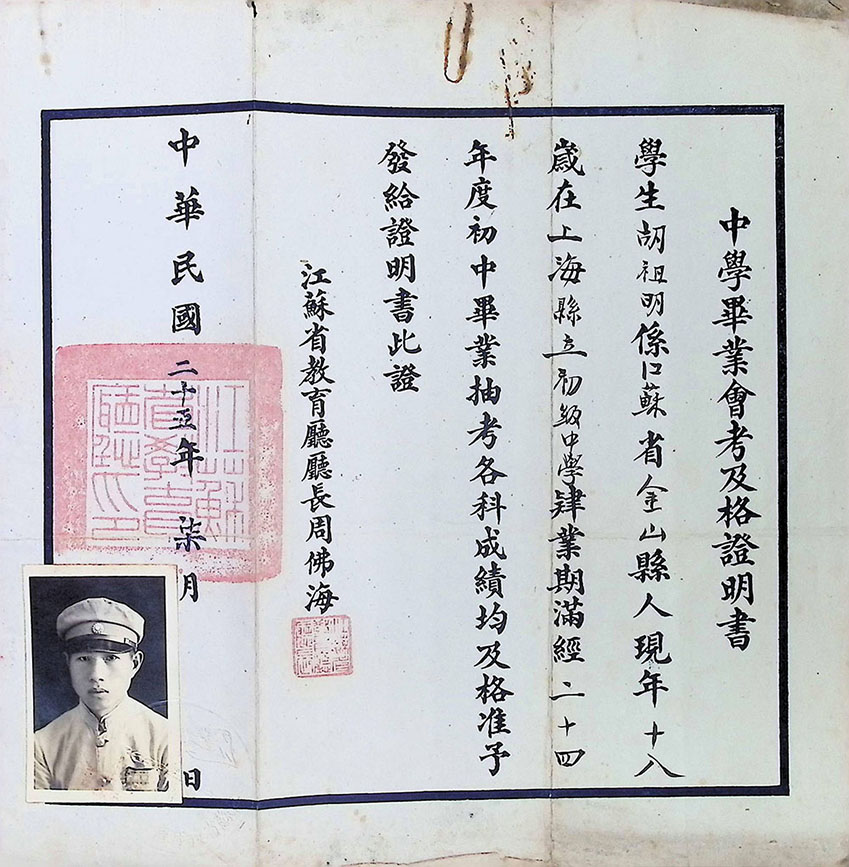 中學畢業會考及格證明書
學生胡祖明係江蘇省金山縣人現年十八
歲在上海縣立初級中學肄業期滿經二十四
年度初中畢業抽考各科成績均及格准予
發給證明書此證
江蘇省教育廳廳長周佛海
中華民國二十五年柒月 日
江蘇省教育廳之印